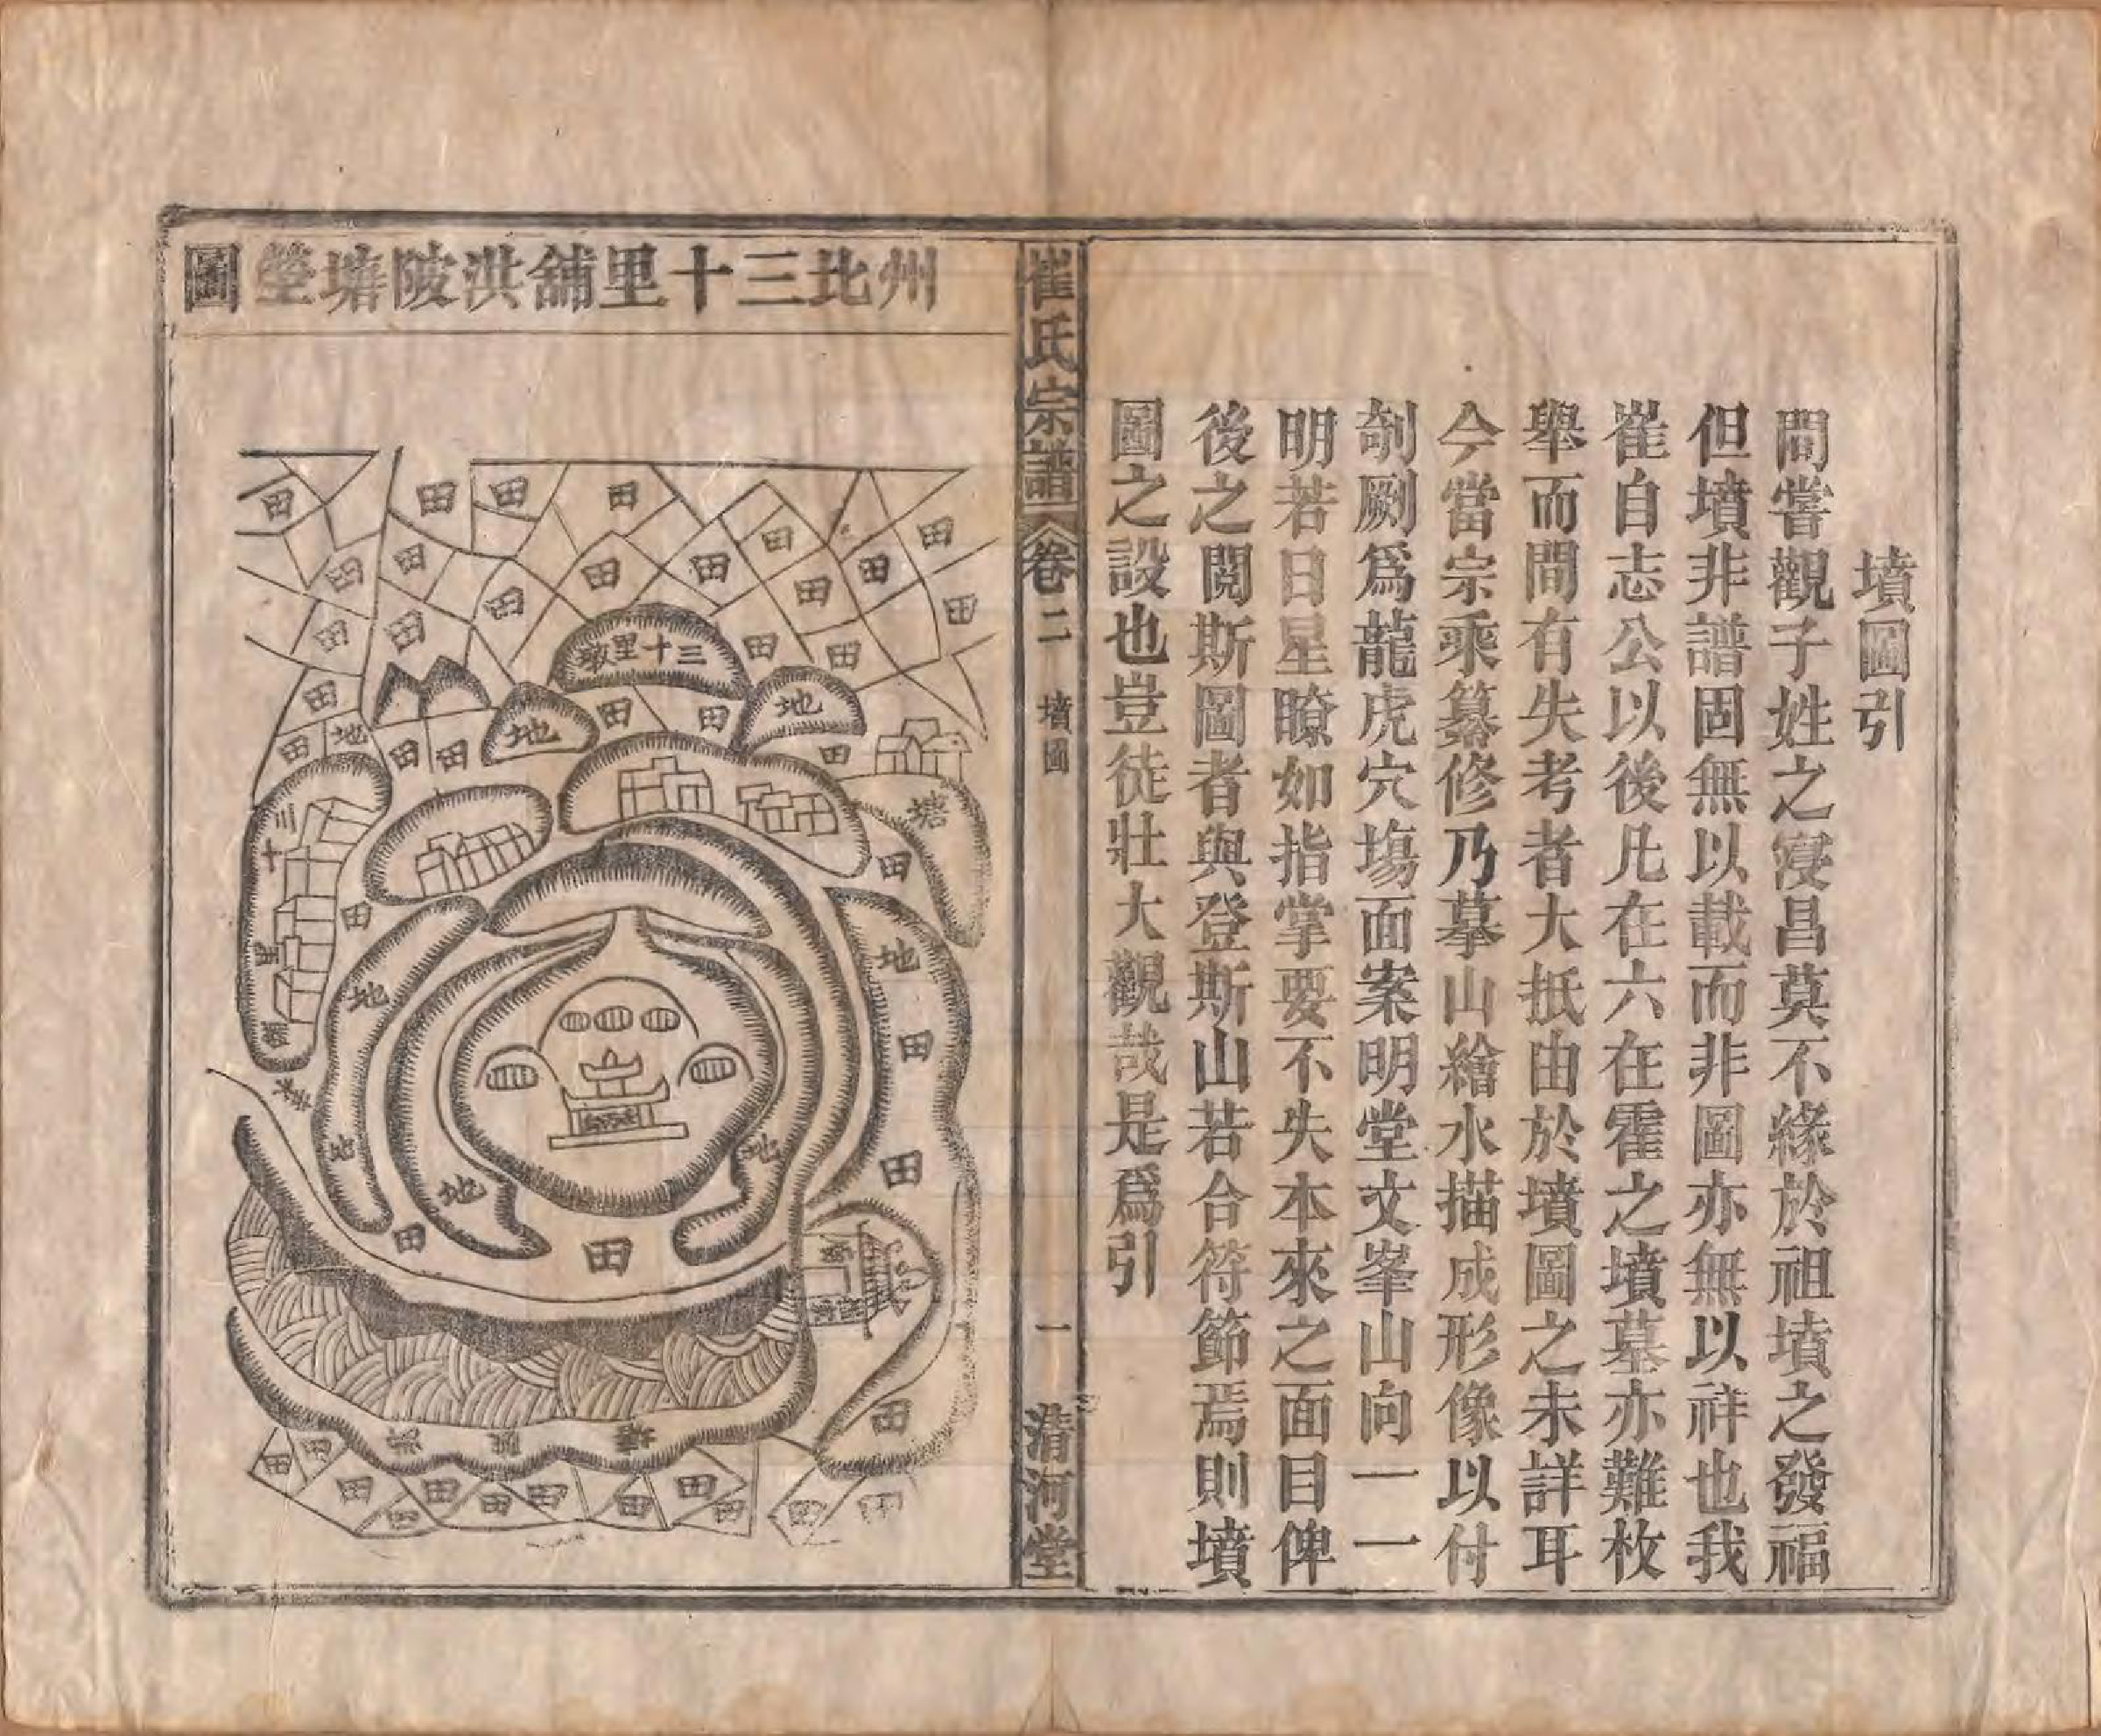 墳圖引
間嘗觀子姓之寖昌莫不緣於祖墳之發福
但墳非譜固無以載而非圖亦無以祥也我
崔自志公以後凡在六在霍之墳墓亦難枚
舉而間有失考者大抵由於墳圖之未詳耳
今當宗乘纂修乃摹山繪水描成形像以付
剞劂為龍虎穴塲面案明堂文峯山向一一
明若日星瞭如指掌要不失本來之面目俾
後之閱斯圖者與登斯山若合符節焉則墳
圖之設也豈徒壯大觀哉是為引
崔氏宗譜
卷二 墳圖
一
清河堂
州北三十里舖洪陂塘塋圖
田 田 田 田
田 田 田 田 田 田 田
田 田 田 田 田
三十里墩
田 田 田
地 地
田 田 田
田 地 田 田 田
塘
三十里舖
田 田
地 地
田
地 田
地 地
田 田
田
洪陂塘
田 田 田 田 田 田 田 田 田 田 田